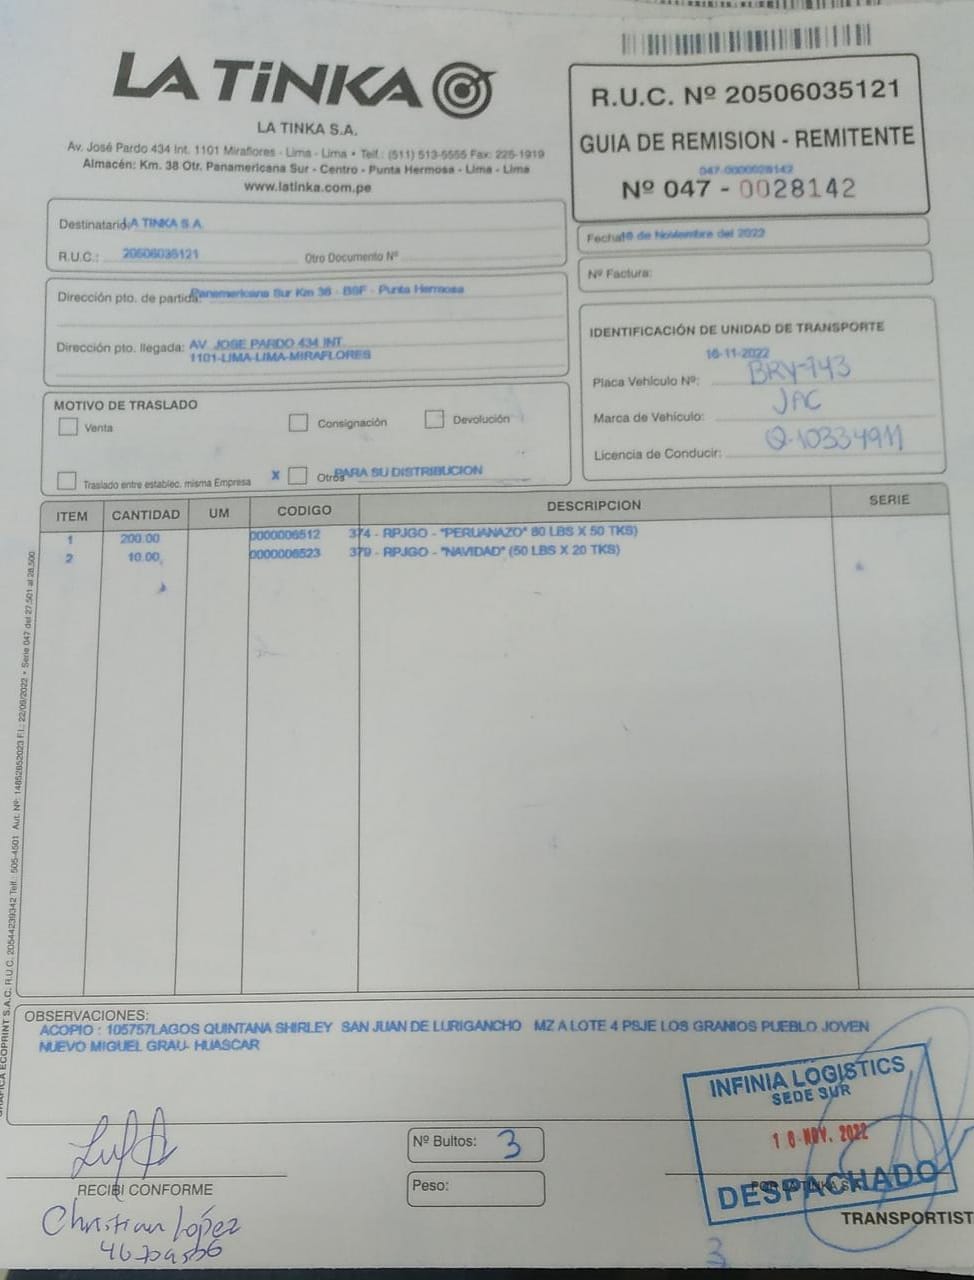 LA TiNKA
LA TINKA S.A.
Av. José Pardo 434 Int. 1101 Miraflores - Lima - Lima • Telf.: (511) 513-5555 Fax: 225-1919
Almacén: Km. 38 Otr. Panamericana Sur - Centro - Punta Hermosa - Lima - Lima
www.latinka.com.pe
R.U.C. Nº 20506035121
GUIA DE REMISION - REMITENTE
047-0000028142
Nº 047 - 0028142
Destinatario A TINKA S.A.
R.U.C.: 20506035121 Otro Documento Nº
Fecha de Noviembre del 2022
Nº Factura:
Dirección pto. de partida: Panamericana Sur Km 38 - BSF - Punta Hermosa
Dirección pto. llegada: AV. JOSE PARDO 434 INT.
1101-LIMA-LIMA-MIRAFLORES
IDENTIFICACIÓN DE UNIDAD DE TRANSPORTE
16-11-2022
Placa Vehículo Nº: BRY-743
Marca de Vehículo: JAC
Licencia de Conducir: Q-10334911
MOTIVO DE TRASLADO
Venta Consignación Devolución
Traslado entre establec. misma Empresa X Otros PARA SU DISTRIBUCION
ITEM CANTIDAD UM CODIGO DESCRIPCION SERIE
1 200.00 0000006512 374 - RPJGO - "PERUANAZO" 80 LBS X 50 TKS)
2 10.00 0000006523 379 - RPJGO - "NAVIDAD" (50 LBS X 20 TKS)
GRAFICA ECOPRINT S.A.C. R.U.C. 20544239342 Telf.: 505-4501 Aut. Nº: 14852852023 F.I.: 22/09/2022 • Serie 047 del 27,501 al 28,500
OBSERVACIONES:
ACOPIO : 105757LAGOS QUINTANA SHIRLEY SAN JUAN DE LURIGANCHO MZ A LOTE 4 PSJE LOS GRANIOS PUEBLO JOVEN
NUEVO MIGUEL GRAU- HUASCAR
INFINIA LOGISTICS
SEDE SUR
18 NOV. 2022
DESPACHADO
Nº Bultos: 3
Peso:
RECIBI CONFORME
Christian López
POR LA TINKA S.A.
TRANSPORTIST
3